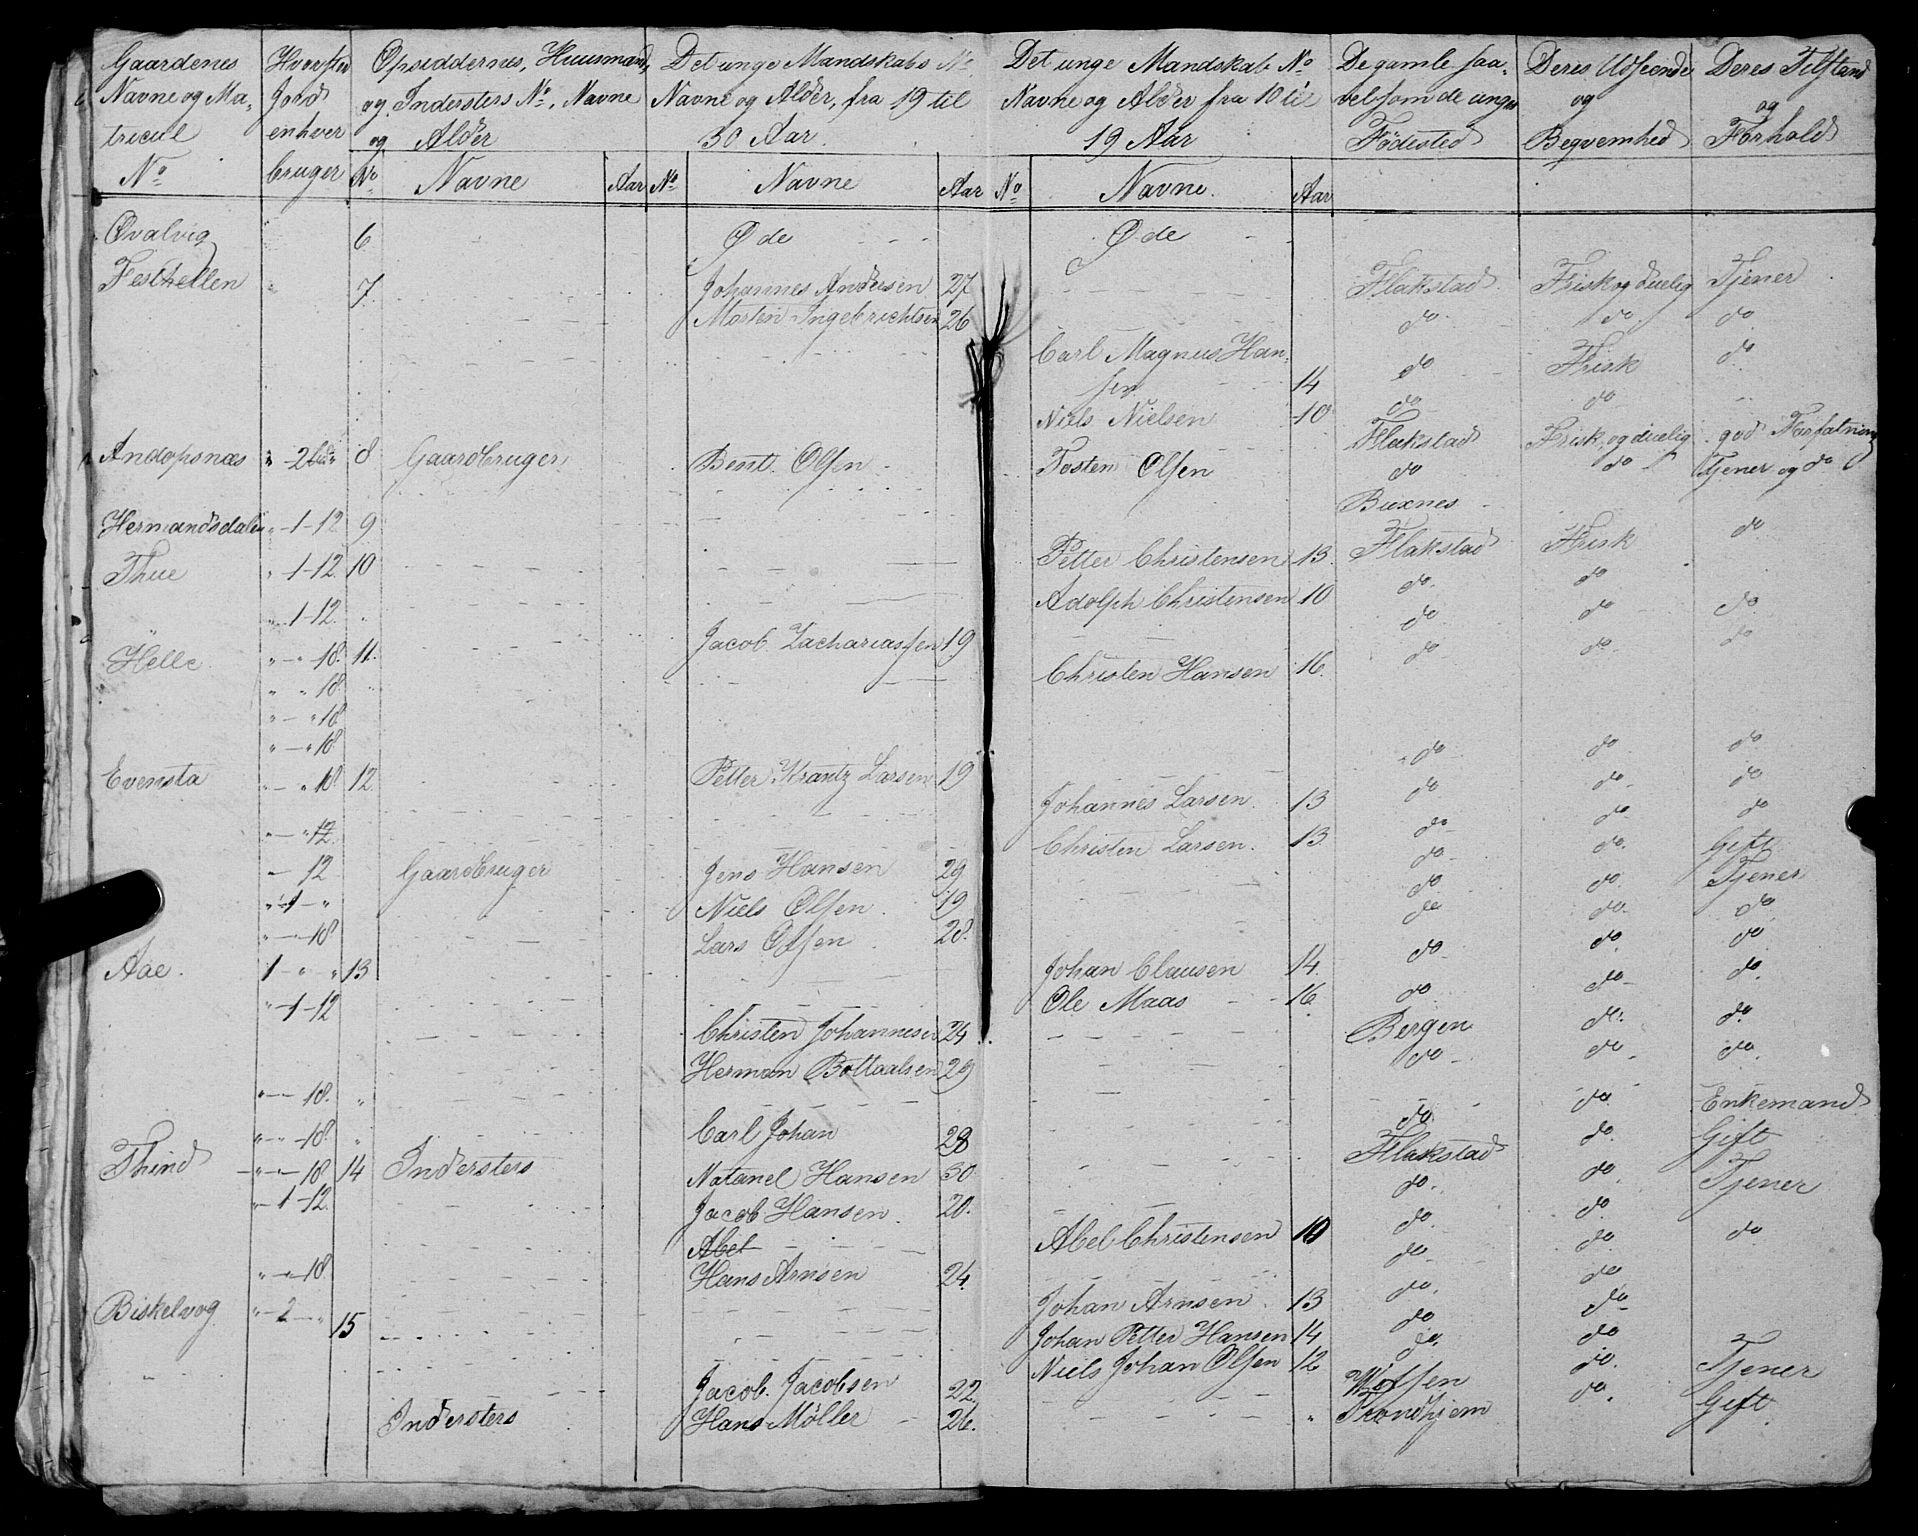 Gaardenes Navne og Matricul No | Hvorstor Jord enhver bruger | Opsiddernes, Huusmænd, og Indersters No, Navne og Alder | Det unge Mandskabs No Navne og Alder, fra 19 til 30 Aar | Det unge Mandskabs No Navne og Alder fra 10 til 19 Aar | De gamle saavelsom de unges Födested | Deres Udseende og Beqvemhed | Deres Tilstand og Forhold
No | Navne | Aar | No | Navne | Aar | No | Navne. | Aar
Qvalvig 6 Øde Øde
Festhellen " 7 Johannes Andersen 27 Flakstad Frisk og duelig Tjener
Morten Ingebrichtsen 26 do do do
Carl Magnus Hansen 14 do Frisk do
Niels Nielsen 10 do do "
Andopsnæs " 2 8 Gaardbruger Bent Olsen Flakstad Frisk og duelig god Forfatning
Tosten Olsen do do Tjener og do
Buxnes
Hermandsdalen " 1-12 9 Petter Christensen 13 Flakstad Frisk do
Thue " 1-12 10 Adolph Christensen 10 do do
" 1-12 " do do do
Helle " " 18 11 Jacob Zachariassen 19 do do do
" " 18 " Christen Hansen 16
" " 18
" " 18
Evensta " " 18 12 Petter Krantz Larsen 19 do do do
Johannes Larsen 13 do do do
" " 12 Christen Larsen 13 do do do
" 12 Gaardbruger Jens Hansen 29 do do Gift
" 1 " Niels Olsen 19 do do Tjener
" " 18 Lars Olsen 28 do do do
Aae 1 " " 13 Johan Clausen 14 do do do
" 1-12 Ole Maas 16 do do do
Christen Johannesen 24 Bergen do do
Herman Bottaalsen 29 do do do
" " 18 "
" " 18 " Carl Johan 28 do do Enkemand
Thind " " 18 14 Indersters Natanel Hansen 30 Flakstad do Gift
" 1-12 Jacob Hansen 20 do do Tjener
Abel Abel Christensen 10 do do
" " 18 Hans Arnsen 24 do do do
Biskelvog " 2 " 15 Johan Arnsen 13 do do
Johan Petter Hansen 14 do do
Niels Johan Olsen 12 do do
Jacob Jacobsen 22 do Tjener
Indersters Hans Möller 26 " Trondhjem do Gift